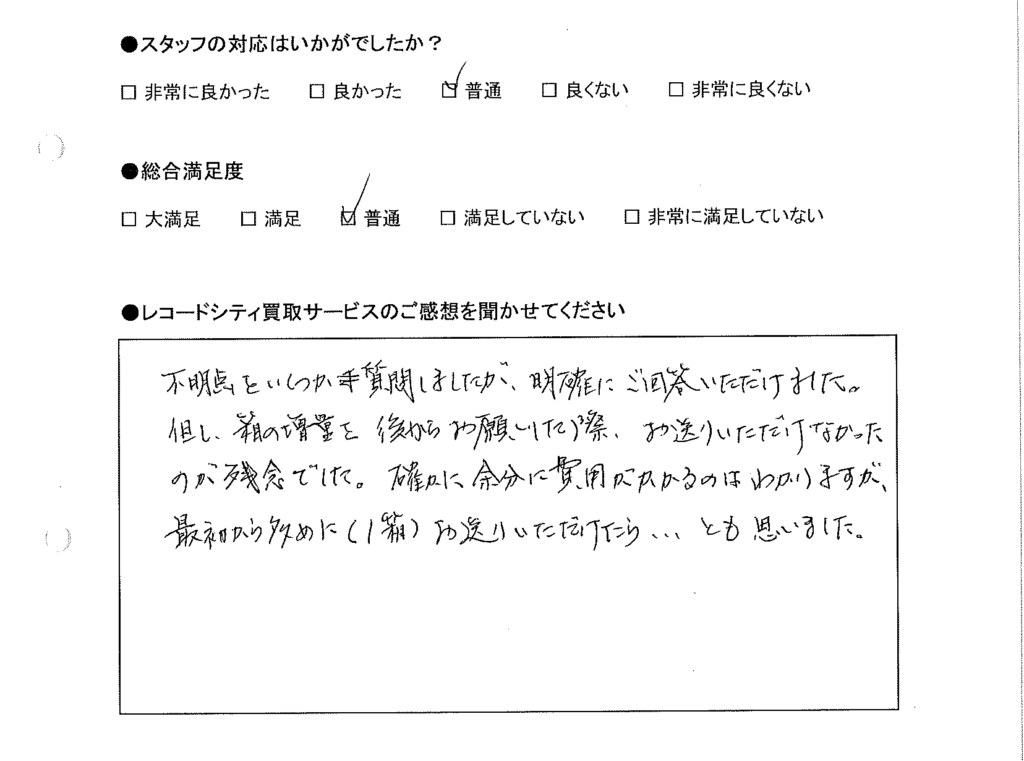 ●スタッフの対応はいかがでしたか？
□ 非常に良かった □ 良かった ☑ 普通 □ 良くない □ 非常に良くない
●総合満足度
□ 大満足 □ 満足 ☑ 普通 □ 満足していない □ 非常に満足していない
●レコードシティ買取サービスのご感想を聞かせてください
不明点をいくつか質問しましたが、明確にご回答いただけました。
但し、箱の増量を後からお願いした際、お送りいただけなかった
のが残念でした。確かに余分に費用がかかるのはわかりますが、
最初から多めに(1箱)お送りいただけたら... とも思いました。